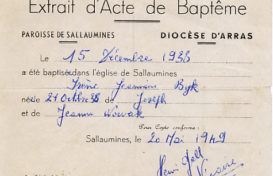 Extrait d'Acte de Baptême
PAROISSE DE SALLAUMINES DIOCÈSE D'ARRAS
Le 15 Décembre 1935
a été baptisé dans l'église de Sallaumines
Byk
né le 27 Octobre de Joseph
et de Jeanne Nowak
Pour Copie conforme :
Sallaumines, le 20 Mai 1949
Vicaire